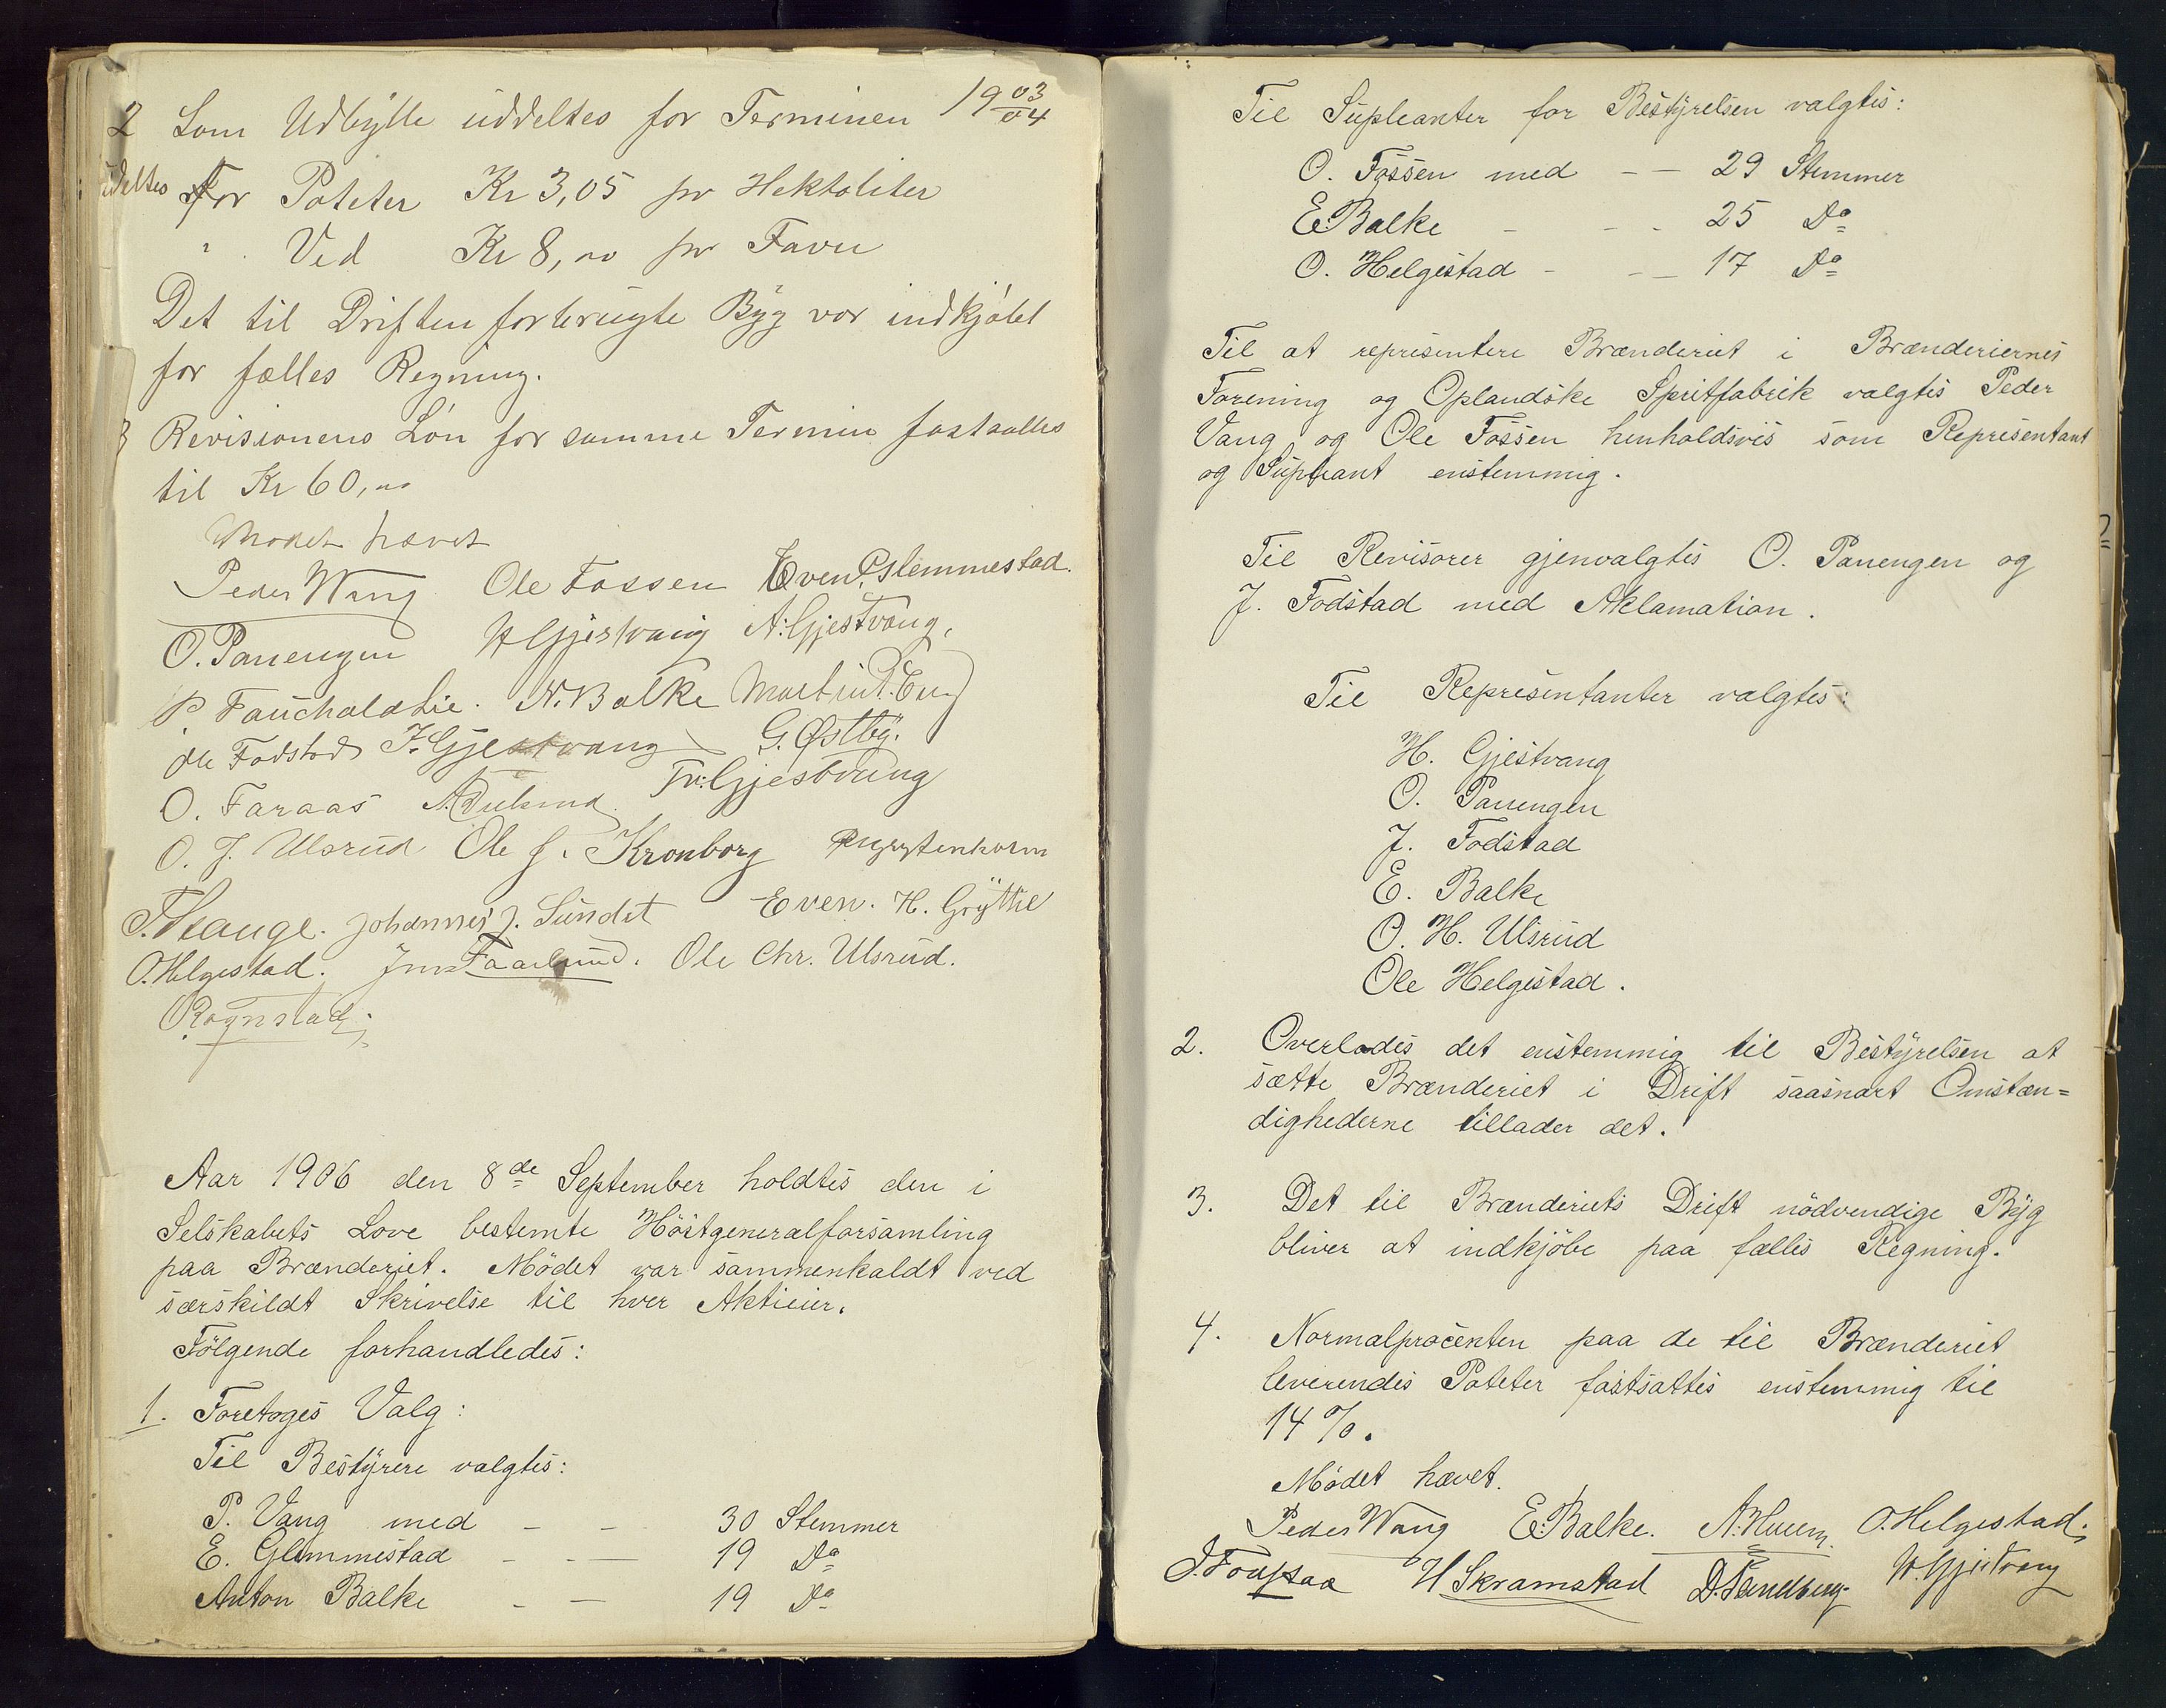 2 Som Udbytte uddeltes for Terminen 19 03/04
uddeltes For Poteter Kr 3,05 pr Hektoliter
" Ved Kr 8,00 pr Favn
Det til Driften forbrugte Byg var indkjöbt
for fælles Regning.
3 Revisionens Lön for samme Termin fastsattes
til Kr 60,00
Mødet hævet
Peder Wang Ole Fossen Even Glemmestad.
O. Panengen H Gjestvang A. Gjestvang,
P Fauchaldlie. N. Balke Martin Berg
Ole Fodstad J. Gjestvang G. Østby.
O. Faraas Fr. Gjestvang
O. J. Ulsrud Ole J. Kronborg
T. Hauge. Johannes J. Sundet Even. H. Grythe
O. Helgestad. Jens Faarlund. Ole Chr. Ulsrud.
O Rognstad.
Aar 1906 den 8de September holdtes den i
Selskabets Love bestemte Höstgeneralforsamling
paa Brænderiet. Mödet var sammenkaldt ved
særskildt Skrivelse til hver Aktieier.
Fölgende forhandledes:
1. Foretoges Valg:
Til Bestyrere valgtes:
P. Vang med - - 30 Stemmer
E. Glemmestad - - - 19 Do
Anton Balke - - 19 Do
Til Supleanter for Bestyrelsen valgtes:
O. Fossen med - - 29 Stemmer
E. Balke - - - 25 Do
O. Helgestad - - - 17 Do
Til at representere Brænderiet i Brænderiernes
Forening og Oplandske Spritfabrik valgtes Peder
Vang og Ole Fossen henholdsvis som Representant
og Supleant enstemmig.
Til Revisorer gjenvalgtes O. Panengen og
J. Fodstad med Aklamation.
Til Representanter valgtes:
H. Gjestvang
O. Panengen
J. Fodstad
E. Balke
O. H. Ulsrud
Ole Helgestad.
2. Overlodes det enstemmig til Bestyrelsen at
sætte Brænderiet i Drift saasnart Omstæn=
dighederne tillader det.
3. Det til Brænderiets Drift nödvendige Byg
bliver at indkjöbe paa fælles Regning.
4. Normalprocenten paa de til Brænderiet
leverendes Poteter fastsattes enstemmig til
14 %.
Mödet hævet.
Peder Wang E. Balke. A. Huem. O. Helgestad.
H Skramstad D. Sandberg H. Gjestvang